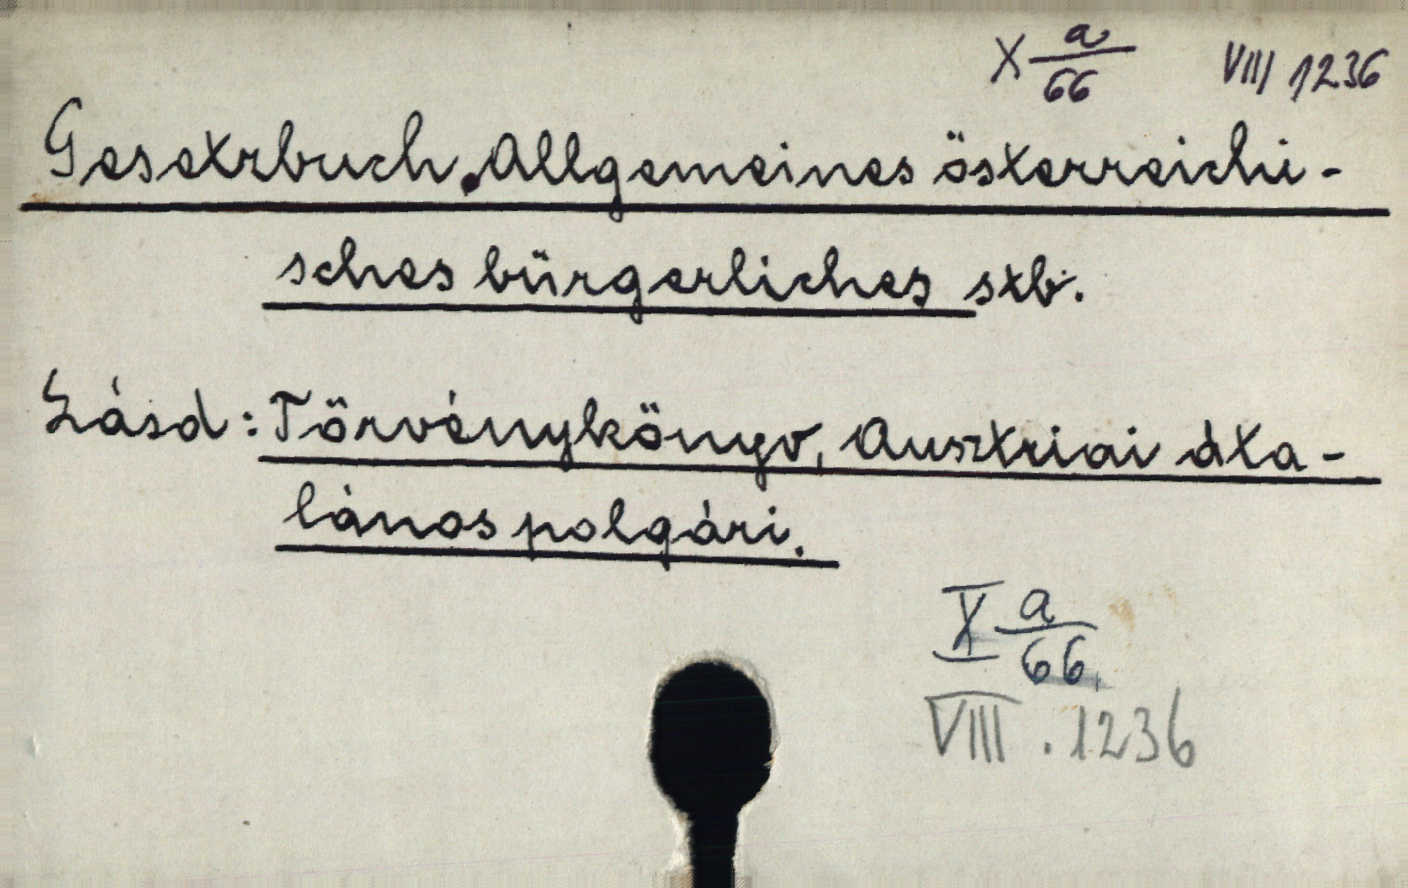 X a/66 VIII 1236
Gesetzbuch, Allgemeines österreichi-
sches bürgerliches stb.
Lásd: Törvénykönyv, Ausztriai álta-
lános polgári.
X a/66
VIII. 1236